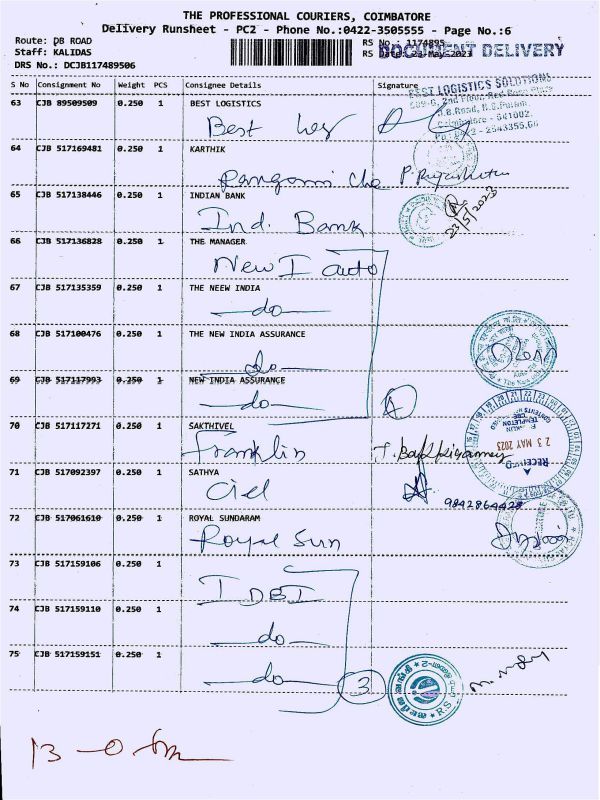 THE PROFESSIONAL COURIERS, COIMBATORE
Delivery Runsheet - PC2 - Phone No.:0422-3505555 - Page No.:6
Route: DB ROAD
RS No.: 1174895
DOCUMENT DELIVERY
Staff: KALIDAS
RS Date: 23-May-2023
DRS No.: DCJB117489506
S No Consignment No Weight PCS Consignee Details Signature
BEST LOGISTICS SOLUTIONS
63 CJB 89509509 0.250 1 BEST LOGISTICS
Best
64 CJB 517169481 0.250 1 KARTHIK
65 CJB 517138446 0.250 1 INDIAN BANK
Ind. Bank
23/5/2023
66 CJB 517136828 0.250 1 THE MANAGER
New I auto
67 CJB 517135359 0.250 1 THE NEEW INDIA
do
68 CJB 517100476 1 THE NEW INDIA ASSURANCE
0.250
do
69 CJB 517117993 0.250 1 NEW INDIA ASSURANCE
do
4
70 CJB 517117271 0.250 1 SAKTHIVEL
Franklin
FRANKLIN TEMPLETON
23 MAY 2023
RECEIVED
71 CJB 517092397 0.250 1 SATHYA
Ciel
9842864428
72 CJB 517061610 0.250 1 ROYAL SUNDARAM
Royal Sun
73 CJB 517159106 0.250 1
IDBI
74 CJB 517159110 0.250 1
do
75 CJB 517159151 0.250 1
do
3
13